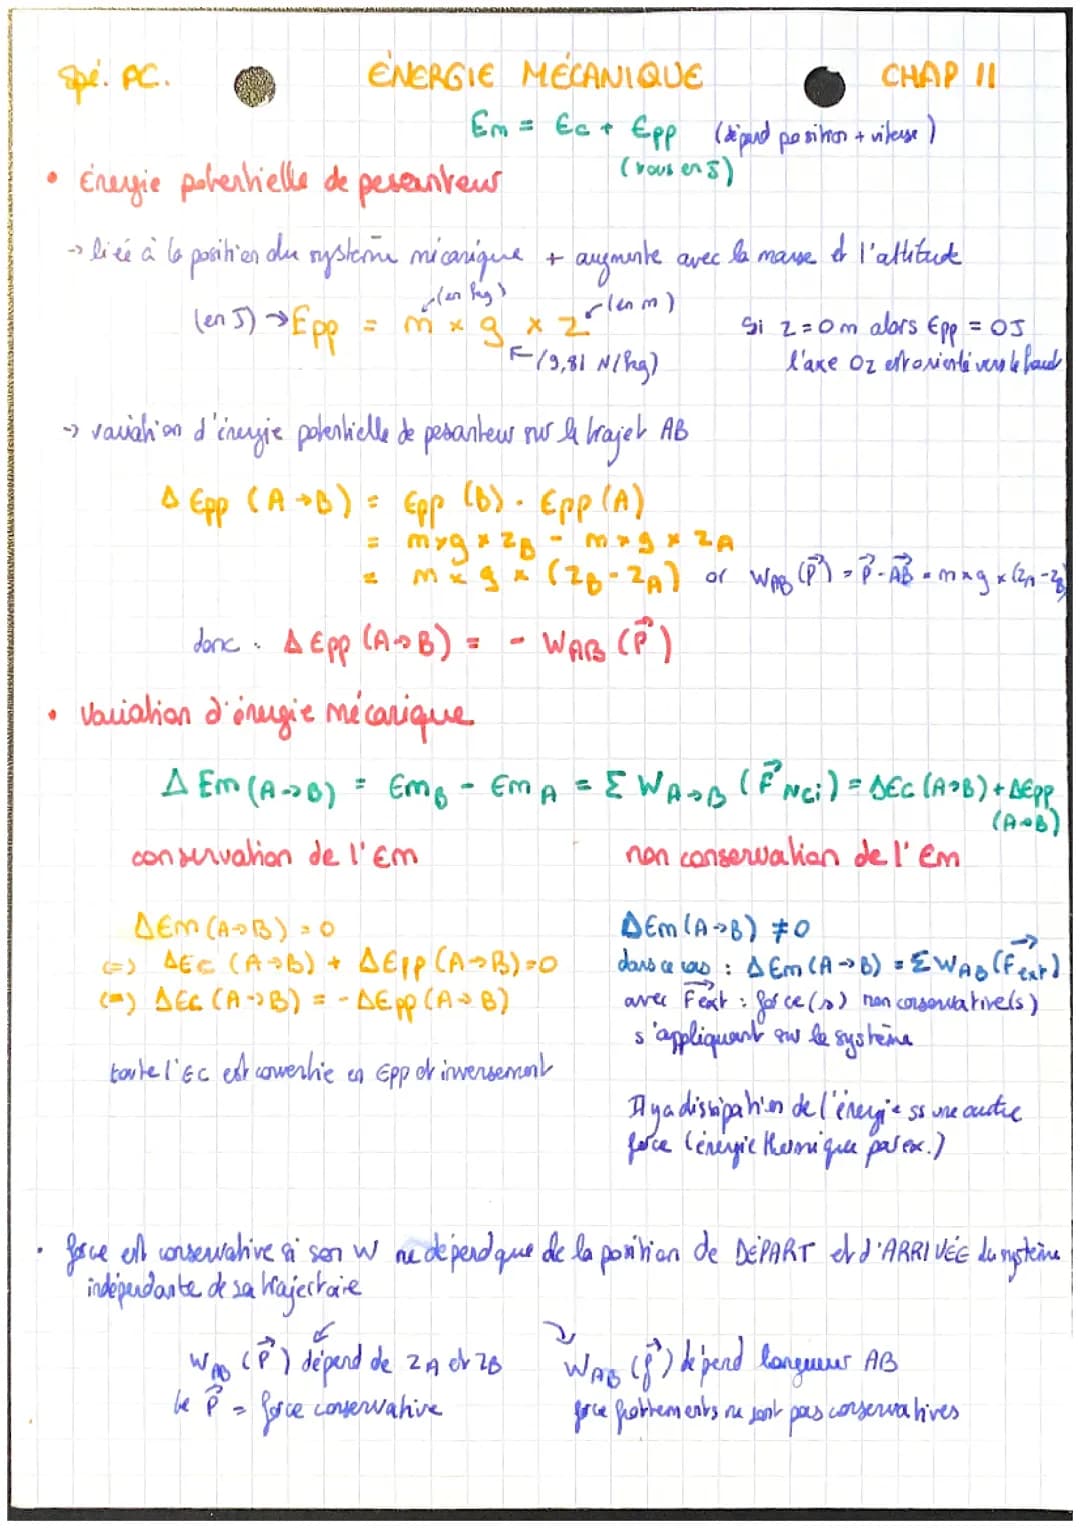 Spé. PC. ÉNERGIE MÉCANIQUE CHAP 11
Em = Ec + Epp (dépend position + vitesse)
(tous en J)
• Énergie potentielle de pesanteur
→ liée à la position du système mécanique + augmente avec la masse et l'altitude
(en J) → Epp = m × g × z (en kg) (en m)
(9,81 N/kg)
Si z = 0 m alors Epp = 0 J
l'axe Oz est orienté vers le haut
→ variation d'énergie potentielle de pesanteur sur le trajet AB
Δ Epp (A→B) = Epp (B) - Epp (A)
= m×g × zB - m × g × zA
= m × g × (zB - zA) or WAB (P⃗) = P⃗ · AB⃗ = m×g × (zA - zB)
donc : Δ Epp (A→B) = - WAB (P⃗)
• Variation d'énergie mécanique
Δ Em (A→B) = EmB - EmA = Σ WA→B (F⃗NCi) = ΔEc (A→B) + ΔEpp
(A→B)
conservation de l'Em
ΔEm (A→B) = 0
(=) ΔEc (A→B) + ΔEpp (A→B) = 0
(=) ΔEc (A→B) = - ΔEpp (A→B)
toute l'Ec est convertie en Epp et inversement
non conservation de l'Em
ΔEm (A→B) ≠ 0
dans ce cas : ΔEm (A→B) = Σ WAB (F⃗ext)
avec F⃗ext : force(s) non conservative(s)
s'appliquant sur le système
Il y a dissipation de l'énergie ss une autre
force (énergie thermique par ex.)
• force est conservative si son W ne dépend que de la position de DÉPART et d'ARRIVÉE du système
indépendante de sa trajectoire
WAB (P⃗) dépend de zA et zB
le P⃗ = force conservative
WAB (f⃗) dépend longueur AB
force frottements ne sont pas conservatives